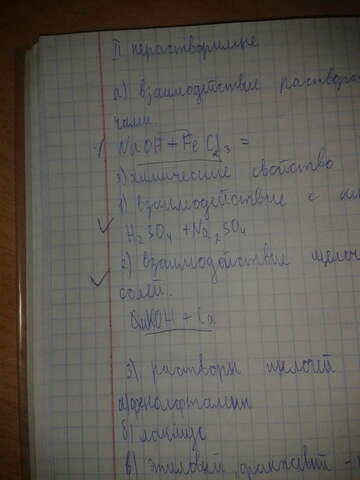 II нерастворимые
а) взаимодействие раствора
чами.
NaOH + FeCl3 =
3) химические свойство
1) взаимодействие с
H2SO4 + Na2SO4
2) взаимодействие щелоч
солей.
KOH + Ca
3) растворы щелочей
а) фенолфталеин
б) лакмус
в) этиловый